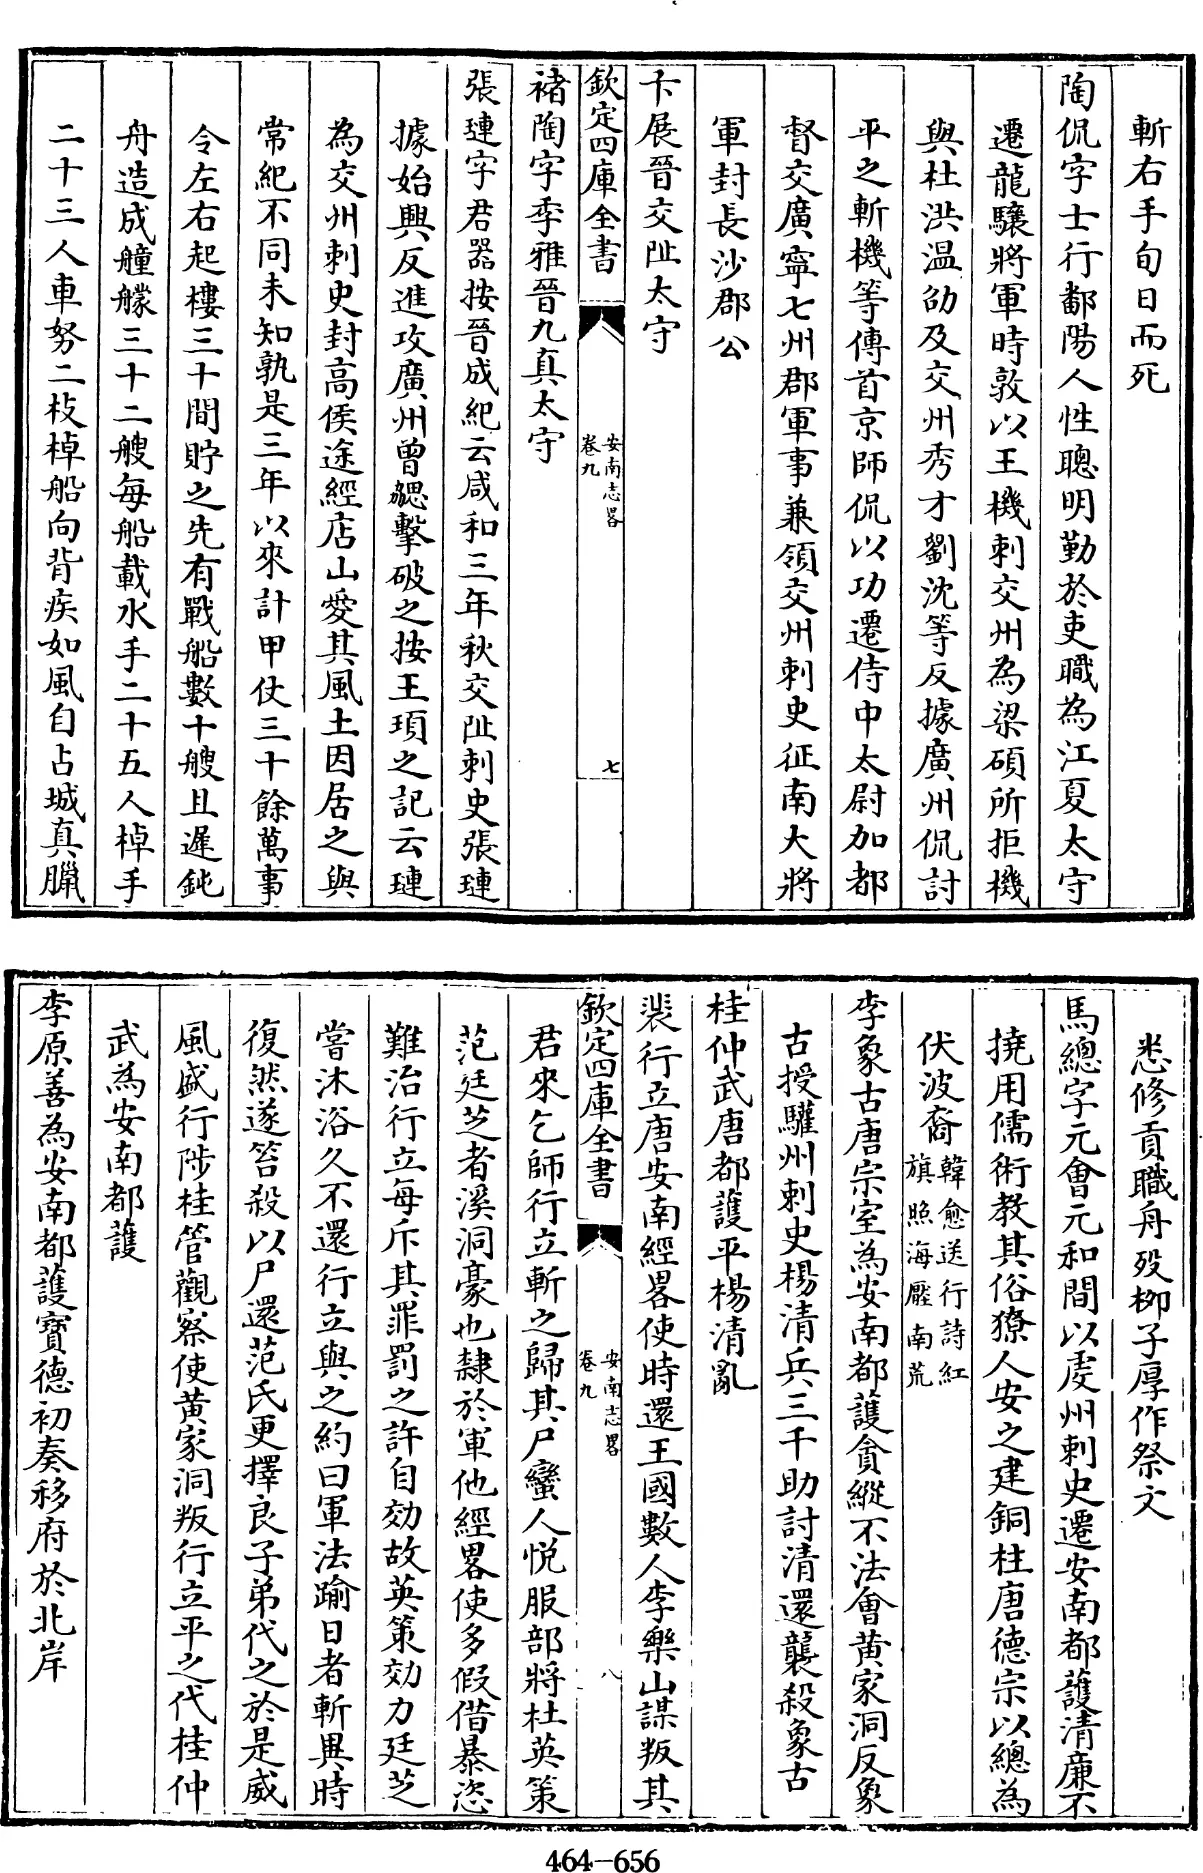 斬右手旬日而死
陶侃字士行鄱陽人性聰明勤於吏職為江夏太守
遷龍驤將軍時敦以王機刺交州為梁碩所拒機
與杜洪温劭及交州秀才劉沈等反據廣州侃討
平之斬機等傳首京師侃以功遷侍中太尉加都
督交廣寧七州郡軍事兼領交州刺史征南大將
軍封長沙郡公
卞展晉交阯太守
欽定四庫全書
安南志畧
卷九
七
褚陶字季雅晉九真太守
張璉字君器按晉成紀云咸和三年秋交阯刺史張璉
據始興反進攻廣州曾勰擊破之按王項之記云璉
為交州刺史封高侯途經店山愛其風土因居之與
常紀不同未知孰是三年以來計甲仗三十餘萬事
令左右起樓三十間貯之先有戰船數十艘且遲鈍
舟造成艟艨三十二艘每船載水手二十五人棹手
二十三人車努二枝棹船向背疾如風自占城真臘
悉修貢職舟殁栁子厚作祭文
馬總字元會元和間以虔州刺史遷安南都護清亷不
撓用儒術教其俗獠人安之建銅柱唐德宗以總為
伏波裔
韓愈送行詩紅
旗照海壓南荒
李象古唐宗室為安南都護貪縱不法會黄家洞反象
古授驩州刺史楊清兵三千助討清還襲殺象古
桂仲武唐都護平楊清亂
裴行立唐安南經畧使時還王國數人李樂山謀叛其
欽定四庫全書
安南志畧
卷九
八
君來乞師行立斬之歸其尸蠻人悦服部將杜英策
范廷芝者溪洞豪也隸於軍他經畧使多假借暴恣
難治行立每斥其罪罰之許自効故英策効力廷芝
嘗沐浴久不還行立與之約曰軍法踰日者斬異時
復然遂笞殺以尸還范氏更擇良子弟代之於是威
風盛行陟桂管觀察使黄家洞叛行立平之代桂仲
武為安南都護
李原善為安南都護寳德初奏移府於北岸
464-656